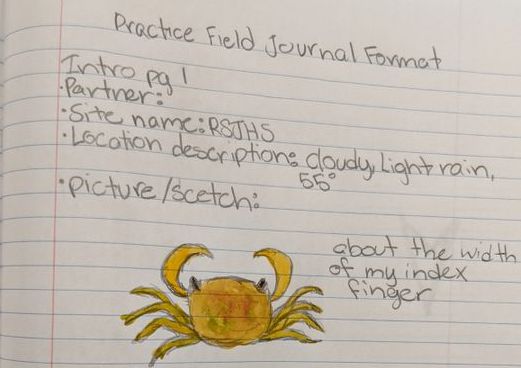 Practice Field Journal Format
Intro pg 1
·Partner:
·Site name: RSJHS
·Location description: cloudy, Light rain,
55°
·picture/scetch:
about the width
of my index
finger